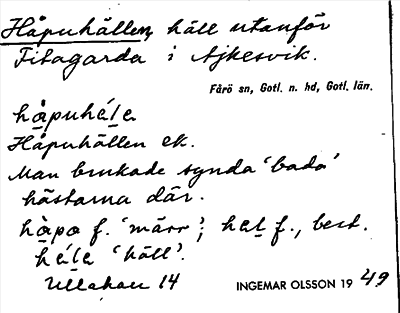 Håpuhällen, häll utanför
Fifagarda i Ajkesvik.
Fårö sn, Gotl. n. hd, Gotl. län.
hàpuhéla
Håpuhällen ek.
Man brukade synda 'bada'
hästarna där.
hàpa f. 'märr'; hel f., best.
héla 'häll'.
Ullahau 14
INGEMAR OLSSON 1949